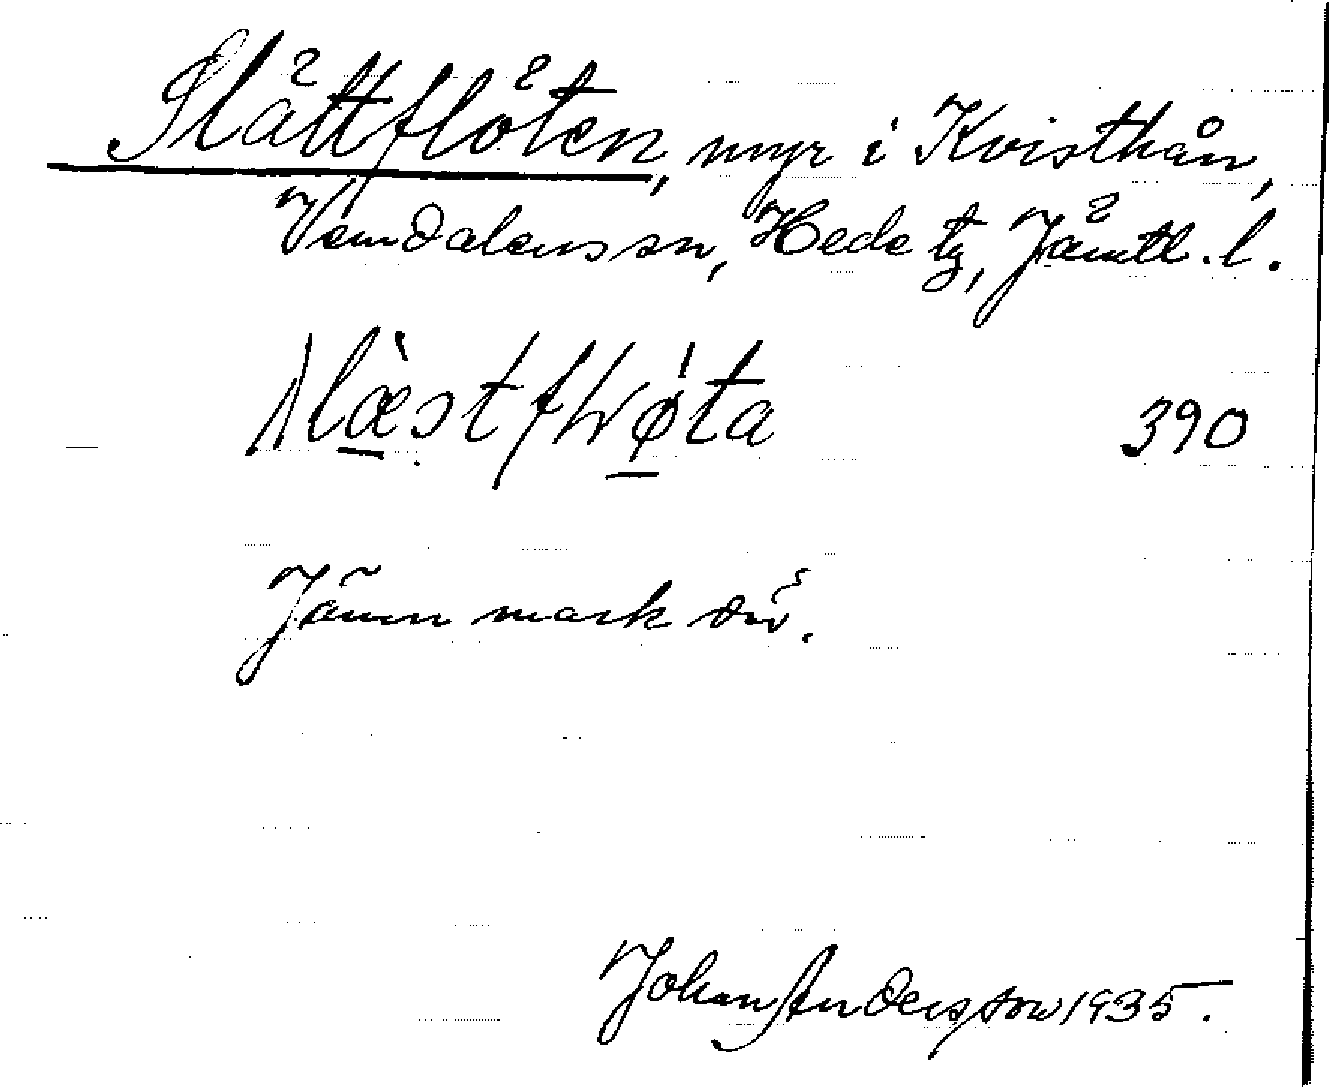 Slättflöten, myr i Kvisthån,
Vemdalens sn, Hede tg, Jämtl. l.
slæ̀stflǿta 390
Jämn mark där.
Johan Andersson 1935.